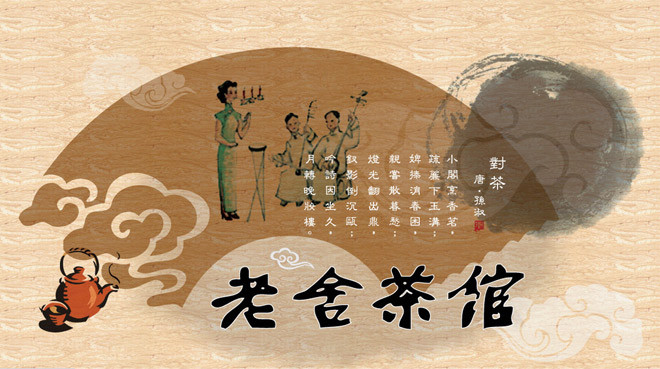 對茶
唐·孫淑
小閣烹香茗，
疏簾下玉溝；
婢捧消春困，
親嘗散暮愁；
燈光翻出鼎，
釵影倒沉甌；
吟詩因坐久，
月轉晚妝樓。
老舍茶馆